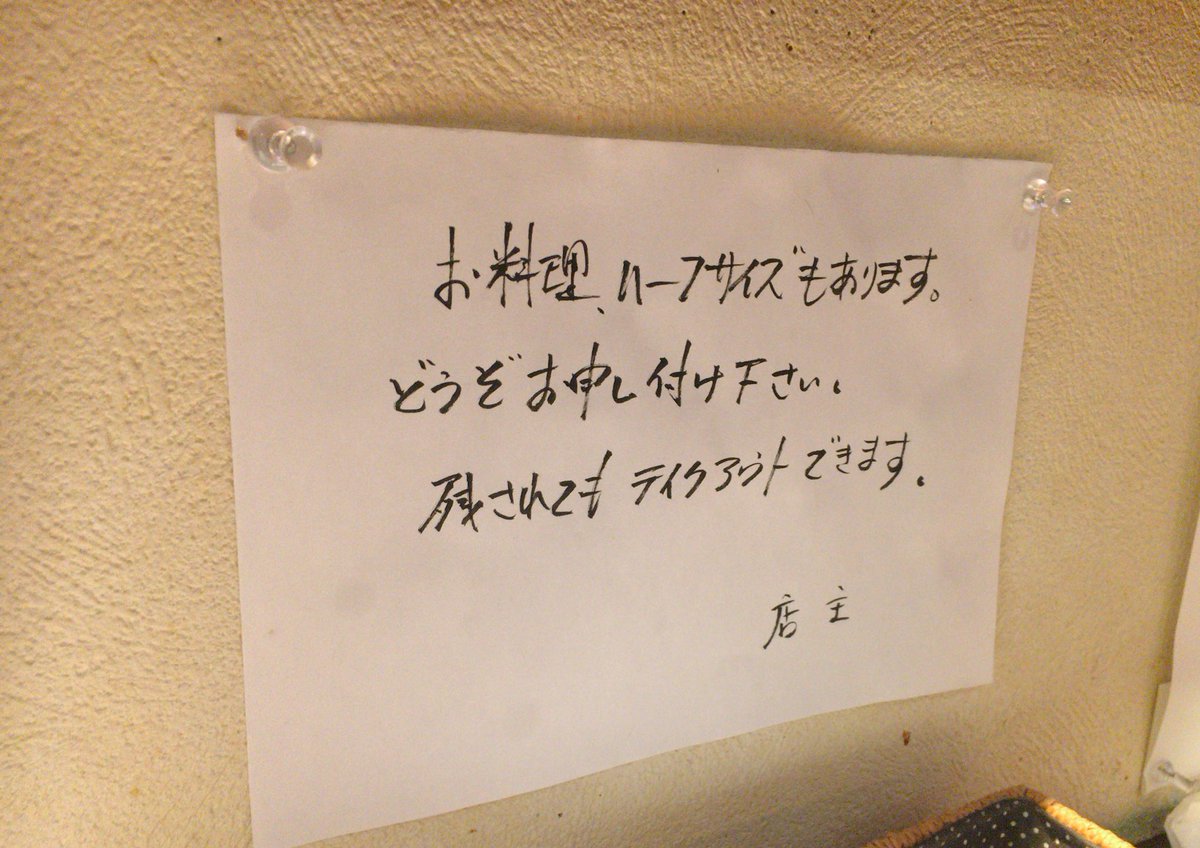 お料理、ハーフサイズもあります。
どうぞお申し付け下さい。
残されてもテイクアウトできます。
店主